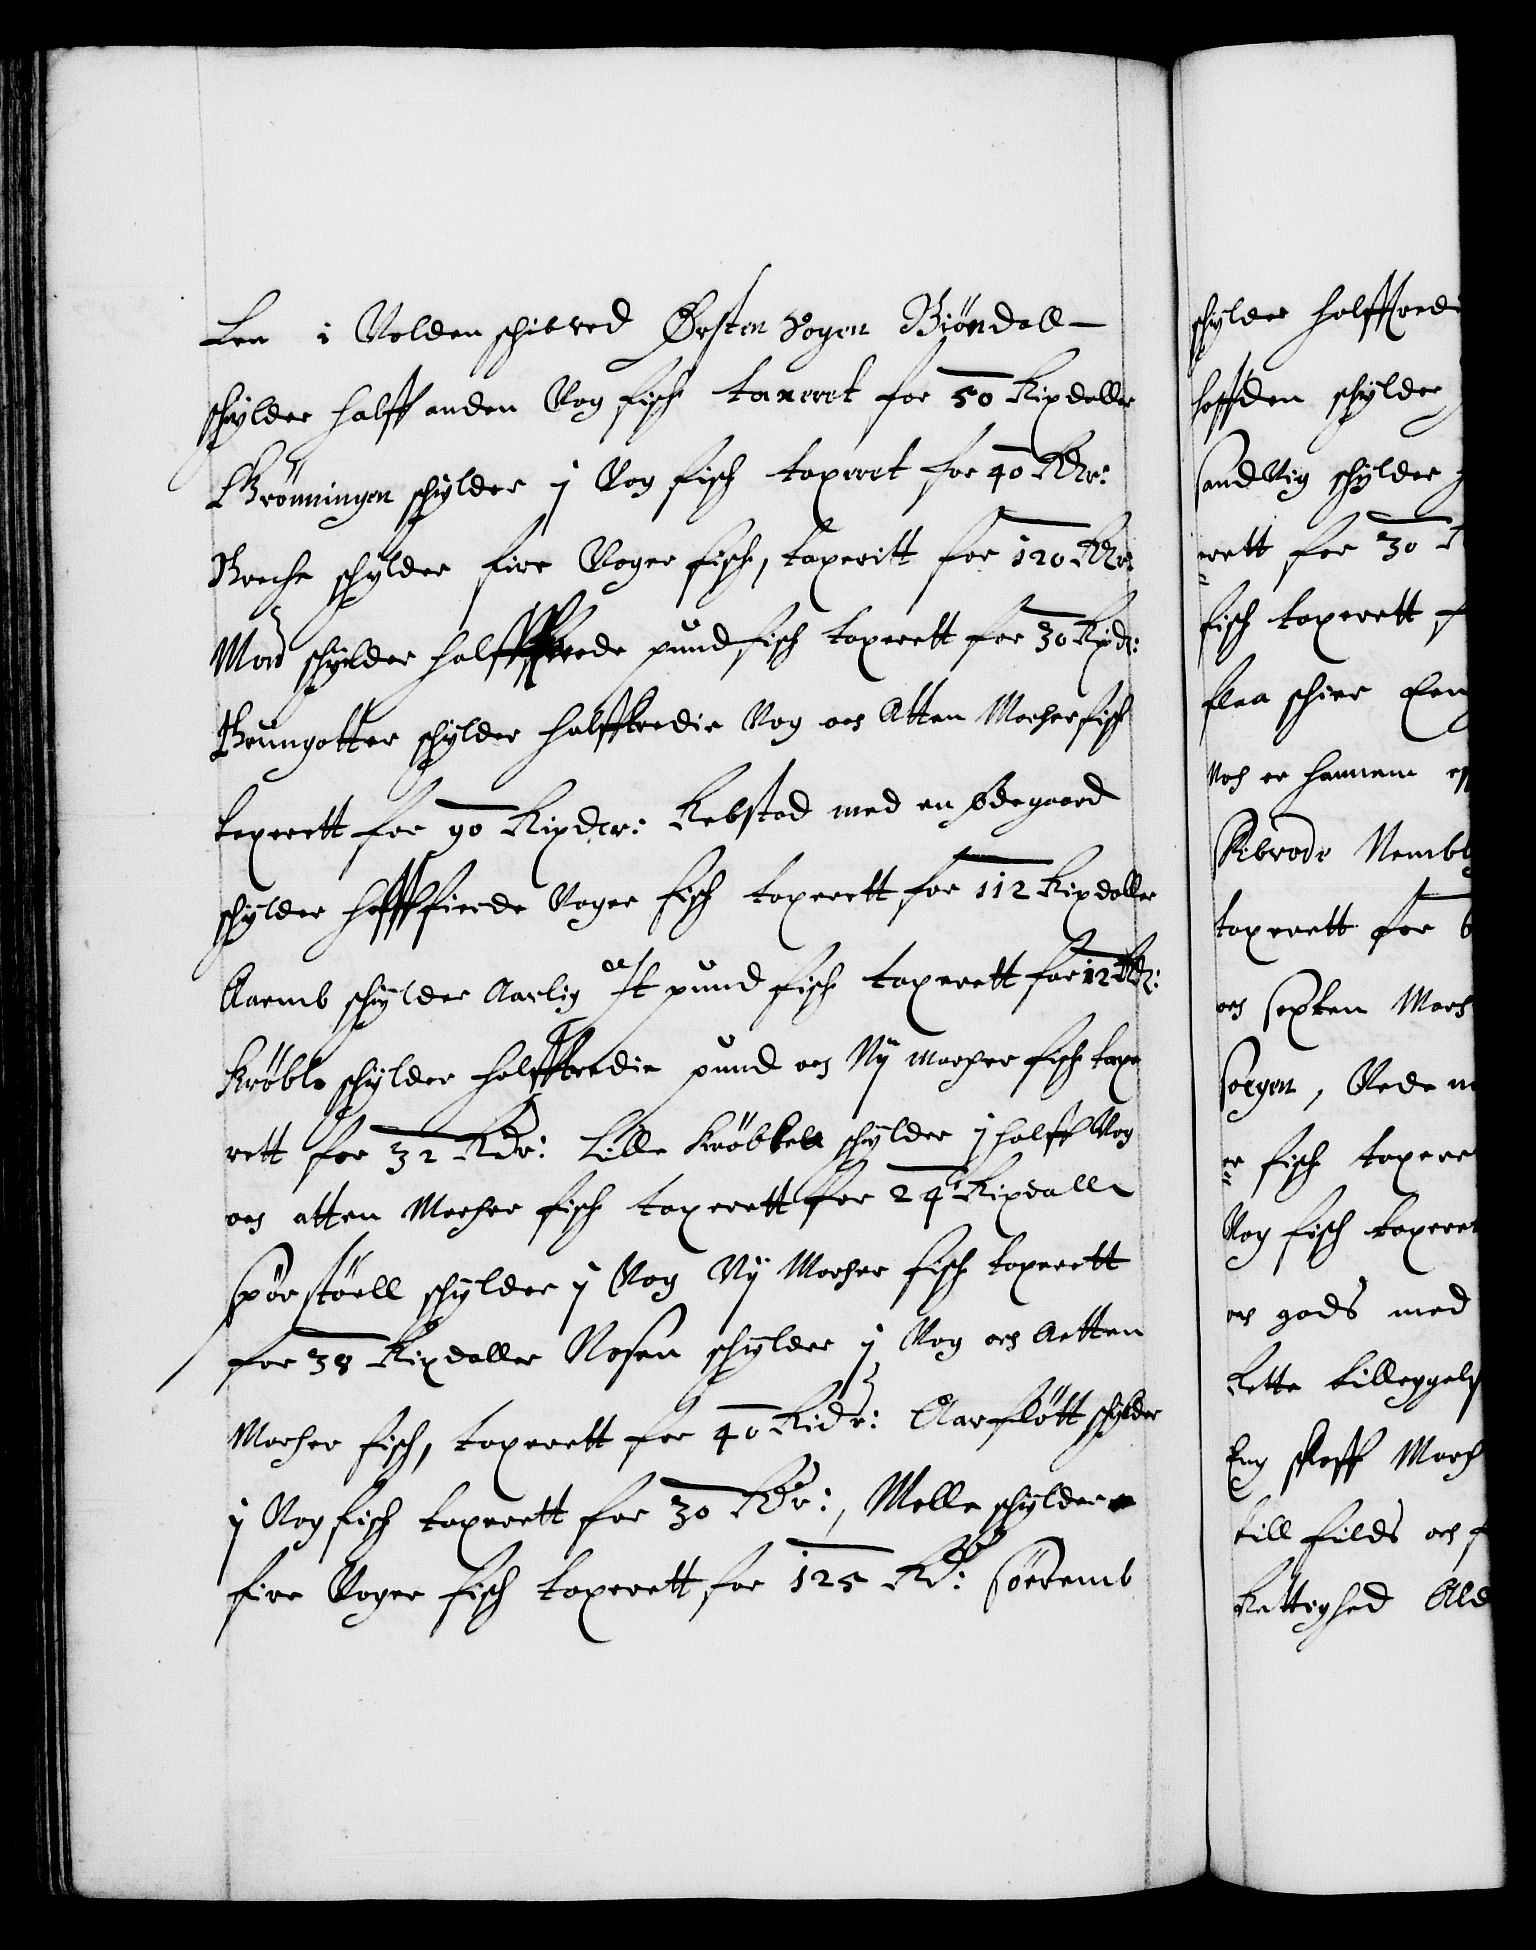 Len i Volden schibred Ørsten Sogen Biöndall –
schylder halff anden Vog fisch taxeret for 50 Rixdaller
Grönningen schylder j Vog fisch taxeret for 40 Rdr:
Breche schylder fire Voger fisch, taxeritt for 120 Rdr
Moe schylder halfftrede pund fisch taxerett for 30 Rixdr:
Brungotter schylder halfftredie Vog och Atten Marcher fisch
taxerett for 90 Rixder: Rebstad med en ødegaard
schylder halffierde Voger fisch taxerett for 112 Rixdaller
Aaremb schylder Aarlig et pund fisch taxerett for 12 Rdr:
Kröbls schylder halfftredie pund och Ny marcher fisch taxe
rett for 32 Rdr: Lille Kröbbels schylder j halff Vog
och atten Marcher fisch taxerett for 24 Rixdalle
Spörstöell schylder j Vog Ny Marcher fisch taxerett
for 38 Rixdaller Nosen schylder j Vog och Aatten
Marcher fisch, taxerett for 40 Rixdr: Aarflött schylder
j Vog fisch taxerett for 30 Rdr:, Melle schylder
fire Voger fisch taxerett for 125 Rdr: Sörremb
schylder halfftredi
hoffden schylder
Sandvig schylder
erett for 30 R
fisch taxerett f
flaa schier Een
Noch er hannem
Skibrode Nembl
taxerett for
och Sexten March
Sorgen, Vede
er fisch taxere
Vog fisch taxeret
och gods med
Rette tilleggels
Eng Skoff March
till filds och f
Rettighed Ald